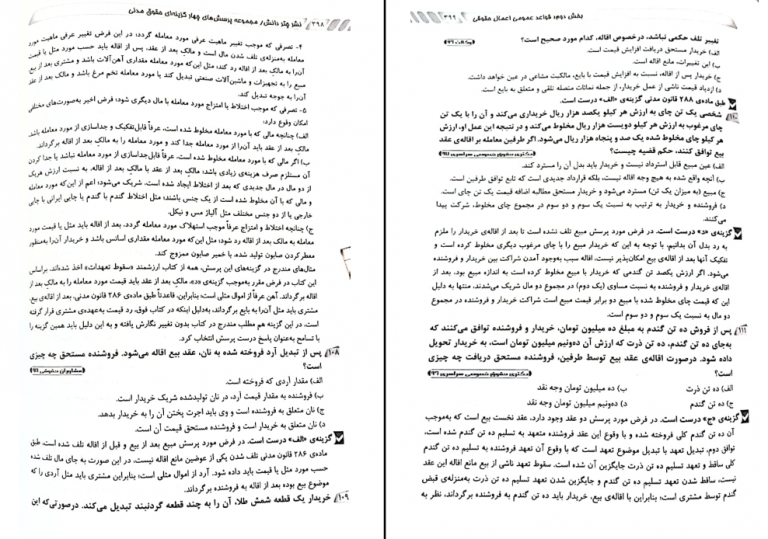 ۳۹۸ نشر ویژ دانش/ مجموعه پرسش‌های چهار گزینه‌ای حقوق مدنی
۴- تصرفی که موجب تغییر ماهیت عرفی مورد معامله گردد؛ در این فرض تغییر عرفی ماهیت مورد
معامله به‌منزله‌ی تلف شدن مال است و مالک بعد از عقد، پس از اقاله باید حسب مورد مثل یا قیمت
آن‌را به مالک بعد از اقاله رد کند؛ مثل این‌که مورد معامله مقداری آهن‌آلات باشد و مشتری بعد از بیع
مبیع را به تجهیزات و ماشین‌آلات صنعتی تبدیل کند یا مورد معامله تخم مرغ باشد و مالک بعد از عقد
آن‌را به جوجه تبدیل کند.
۵- تصرفی که موجب اختلاط یا امتزاج مورد معامله با مال دیگری شود؛ فرض اخیر به‌صورت‌های مختلفی
امکان وقوع دارد:
الف) چنانچه مالی که با مورد معامله مخلوط شده است، عرفاً قابل‌تفکیک و جداسازی از مورد معامله باشد
مالک بعد از عقد باید آن‌را از مورد معامله جدا کند و مورد معامله را به مالک بعد از اقاله برگرداند.
ب) اگر مالی که با مورد معامله مخلوط شده است، عرفاً قابل‌جداسازی از مورد معامله نباشد یا جدا کردن
آن مستلزم صرف هزینه‌ی زیادی باشد، مالک بعد از عقد با مالک بعد از اقاله، به نسبت ارزش هریک
از دو مال در مال جدیدی که بعد از اختلاط ایجاد شده است، شریک می‌شود؛ اعم از این‌که مورد معامله
و مالی که با آن مخلوط شده است از یک جنس باشند؛ مثل اختلاط گندم با گندم یا چایی ایرانی با چایی
خارجی یا از دو جنس مختلف مثل آلیاژ مس و نیکل.
ج) چنانچه اختلاط و امتزاج عرفاً موجب استهلاک مورد معامله گردد، بعد از اقاله باید مثل یا قیمت مورد
معامله به مالک بعد از اقاله رد شود؛ مثل این‌که مورد معامله مقداری اسانس باشد و خریدار آن‌را به‌منظور
معطر کردن صابون تولید شده، با خمیر صابون ممزوج کند.
مثال‌های مندرج در گزینه‌های این پرسش، همه از کتاب ارزشمند «سقوط تعهدات» اخذ شده‌اند. براساس
این کتاب در فرض مقرر به‌موجب گزینه‌ی «د»، مالک بعد از عقد باید قیمت مورد معامله را به مالک بعد از
اقاله برگرداند. آهن عرفاً از اموال مثلی است؛ بنابراین، قاعدتاً طبق ماده‌ی ۲۸۶ قانون مدنی، بعد از اقاله‌ی بیع،
مشتری باید مثل آن‌را به بایع برگرداند. به‌دلیل اینکه در کتاب فوق، رد قیمت به‌عهده‌ی مشتری قرار گرفته
است، در این گزینه هم مطلب مندرج در کتاب بدون تغییر نگارش یافته و به این دلیل باید همین گزینه را
با تسامح به‌عنوان پاسخ درست پرسش انتخاب کرد.
۱۰۸ پس از تبدیل آرد فروخته شده به نان، عقد بیع اقاله می‌شود. فروشنده مستحق چه چیزی
است؟
الف) مقدار آردی که فروخته است.
ب) فروشنده به مقدار قیمت آرد، در نان تولیدشده شریک خریدار است.
ج) نان متعلق به فروشنده است و وی باید اجرت پختن آن را به خریدار بدهد.
د) نان متعلق به فروشنده است و فروشنده مستحق قیمت آن است.
گزینه‌ی «الف» درست است. در فرض مورد پرسش مبیع بعد از بیع و قبل از اقاله تلف شده است. طبق
ماده‌ی ۲۸۶ قانون مدنی تلف شدن یکی از عوضین مانع اقاله نیست، در این صورت به جای مال تلف شده
حسب مورد مثل یا قیمت باید داده شود. آرد از اموال مثلی است؛ بنابراین مشتری باید مثل آردی را که
موضوع بیع بوده بعد از اقاله به فروشنده برگرداند.
۱۰۹ خریدار یک قطعه شمش طلا، آن را به چند قطعه گردنبند تبدیل می‌کند. درصورتی‌که این
بخش دوم: قواعد عمومی اعمال حقوقی ۳۹۹
تغییر تلف حکمی نباشد، درخصوص اقاله، کدام مورد صحیح است؟
الف) خریدار مستحق دریافت افزایش قیمت است.
ب) این تغییرات، مانع اقاله است.
ج) خریدار پس از اقاله، نسبت به افزایش قیمت با بایع، مالکیت مشاعی در عین خواهد داشت.
د) ازدیاد قیمت ناشی از عمل خریدار، از جمله نمائات متصله تلقی و متعلق به بایع است.
طبق ماده‌ی ۲۸۸ قانون مدنی گزینه‌ی «الف» درست است.
۱۱۰ شخصی یک تن چای به ارزش هر کیلو یکصد هزار ریال خریداری می‌کند و آن را با یک تن
چای مرغوب به ارزش هر کیلو دویست هزار ریال مخلوط می‌کند و در نتیجه این عمل او، ارزش
هر کیلو چای مخلوط شده یک صد و پنجاه هزار ریال می‌شود. اگر طرفین معامله بر اقاله‌ی عقد
بیع توافق کنند، حکم قضیه چیست؟
الف) عین مبیع قابل استرداد نیست و خریدار باید بدل آن را مسترد کند.
ب) آنچه واقع شده به هیچ وجه اقاله نیست، بلکه قرارداد جدیدی است که تابع توافق طرفین است.
ج) مبیع (به میزان یک تن) مسترد می‌شود و خریدار مستحق مطالبه اضافه قیمت یک تن چای است.
د) فروشنده و خریدار به ترتیب به نسبت یک سوم و دو سوم در مجموع چای مخلوط، شرکت پیدا
می‌کنند.
گزینه‌ی «د» درست است. در فرض مورد پرسش مبیع تلف نشده است تا بعد از اقاله‌ی خریدار را ملزم
به رد بدل آن بدانیم، با توجه به این که خریدار مبیع را با چای مرغوب دیگری مخلوط کرده است و
تفکیک آنها بعد از اقاله‌ی بیع امکان‌پذیر نیست، اقاله سبب به‌وجود آمدن شراکت بین خریدار و فروشنده
می‌شود. اگر ارزش یکصد تن گندمی که خریدار با مبیع مخلوط کرده است به اندازه مبیع بود، بعد از
اقاله‌ی خریدار و فروشنده به نسبت مساوی (یک دوم) در مجموع دو مال شریک می‌شدند، منتها به دلیل
این که قیمت چای مخلوط شده با مبیع دو برابر قیمت مبیع است شراکت خریدار و فروشنده در مجموع
دو مال به نسبت یک سوم و دو سوم است.
۱۱۱ پس از فروش ده تن گندم به مبلغ ده میلیون تومان، خریدار و فروشنده توافق می‌کنند که
به‌جای ده تن گندم، ده تن ذرت که ارزش آن ده‌ونیم میلیون تومان است، به خریدار تحویل
داده شود. درصورت اقاله‌ی عقد بیع توسط طرفین، فروشنده مستحق دریافت چه چیزی
است؟
الف) ده تن ذرت ب) ده میلیون تومان وجه نقد
ج) ده تن گندم د) ده‌ونیم میلیون تومان وجه نقد
گزینه‌ی «ج» درست است. در فرض مورد پرسش دو عقد وجود دارد، عقد نخست بیع است که به‌موجب
آن ده تن گندم کلی فروخته شده و با وقوع این عقد فروشنده متعهد به تسلیم ده تن گندم شده است،
توافق دوم، تبدیل تعهد با تبدیل موضوع تعهد است که با وقوع آن تعهد فروشنده به تسلیم ده تن گندم
کلی ساقط و تعهد تسلیم ده تن ذرت جایگزین آن شده است. سقوط تعهد ناشی از بیع مانع اقاله این عقد
نیست، ساقط شدن تعهد تسلیم ده تن گندم و جایگزین شدن تعهد تسلیم ده تن ذرت به‌منزله‌ی قبض
گندم توسط مشتری است؛ بنابراین با اقاله‌ی بیع، خریدار باید ده تن گندم به فروشنده برگرداند، نظر به